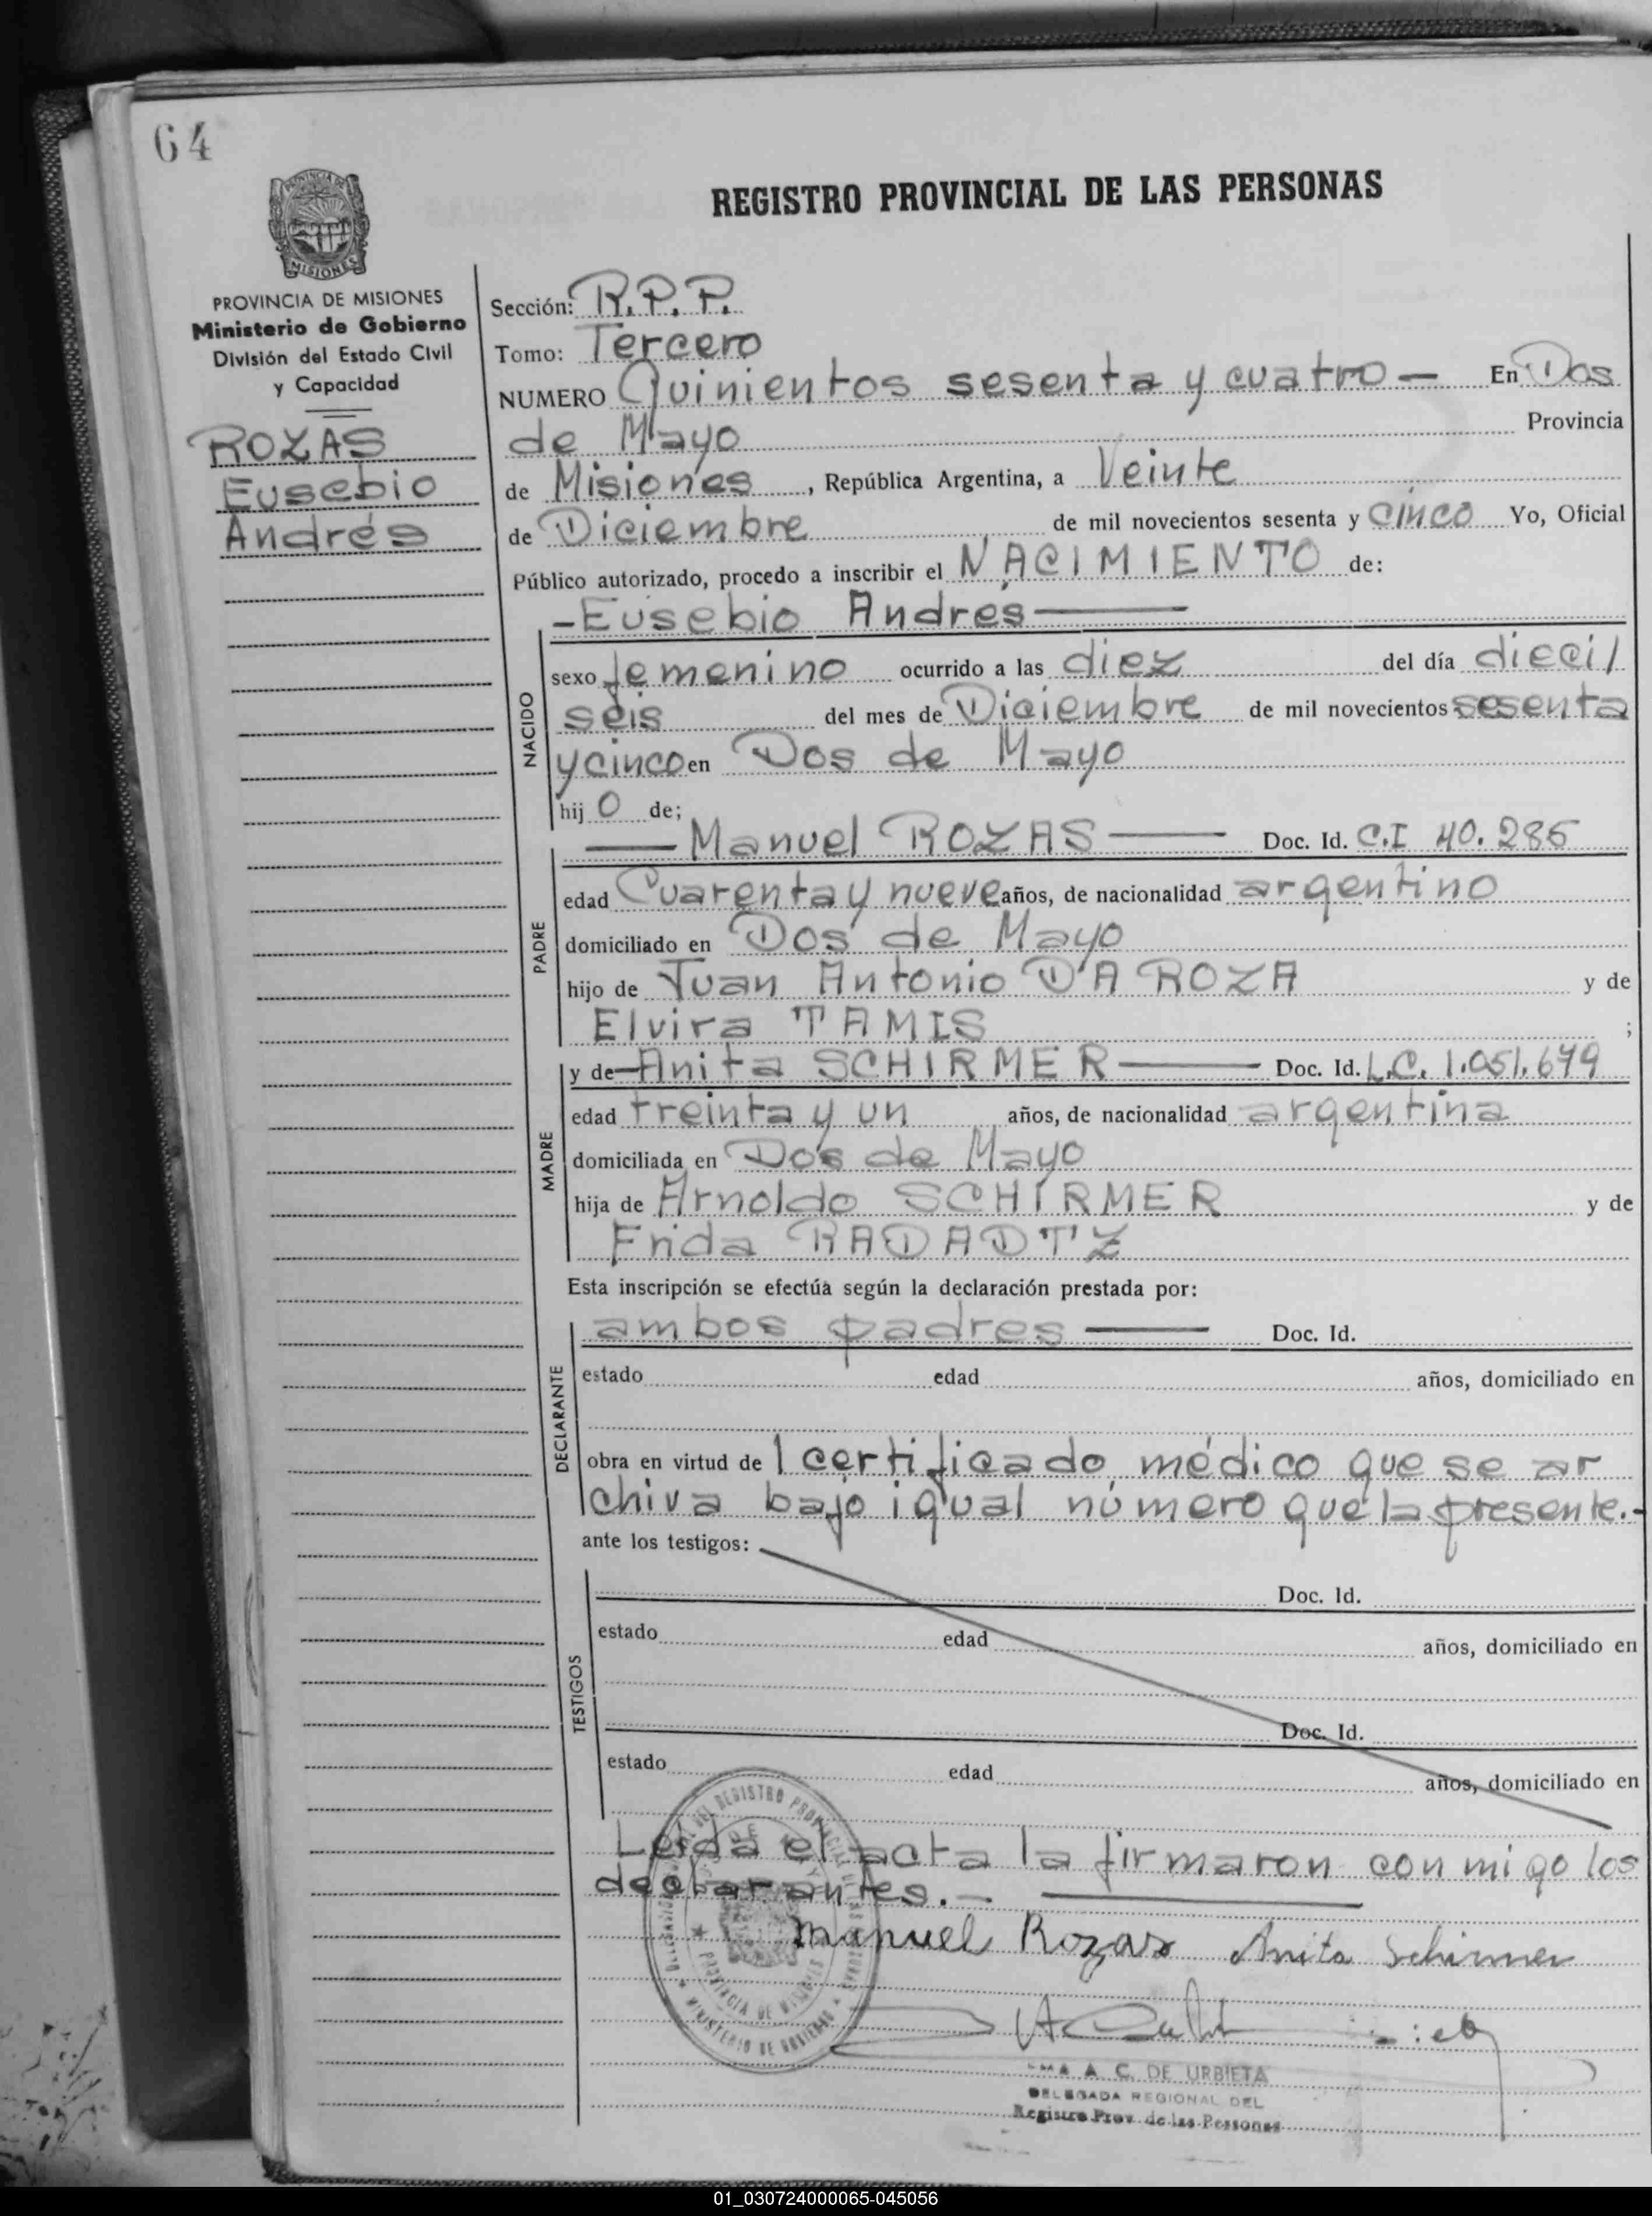 64
REGISTRO PROVINCIAL DE LAS PERSONAS
PROVINCIA DE MISIONES
MISIONES
PROVINCIA DE MISIONES
Ministerio de Gobierno
División del Estado Civil
y Capacidad
ROZAS
Eusebio
Andrés
Sección: R.P.P.
Tomo: Tercero
NUMERO Quinientos sesenta y cuatro — En Dos
de Mayo Provincia
de Misiones, República Argentina, a Veinte
de Diciembre de mil novecientos sesenta y cinco Yo, Oficial
Público autorizado, procedo a inscribir el NACIMIENTO de:
- Eusebio Andrés —
NACIDO
sexo femenino ocurrido a las diez del día dieci/
seis del mes de Diciembre de mil novecientos sesenta
y cinco en Dos de Mayo
hij o de;
PADRE
— Manuel ROZAS — Doc. Id. C.I 40.286
edad Cuarenta y nueve años, de nacionalidad argentino
domiciliado en Dos de Mayo
hijo de Juan Antonio D'A ROZA y de
Elvira TAMIS ;
MADRE
y de — Anita SCHIRMER — Doc. Id. L.C. 1.051.679
edad treinta y un años, de nacionalidad argentina
domiciliada en Dos de Mayo
hija de Arnoldo SCHIRMER y de
Frida RADADTZ
Esta inscripción se efectúa según la declaración prestada por:
DECLARANTE
ambos padres — Doc. Id.
estado edad años, domiciliado en
obra en virtud de 1 certificado médico que se ar
chiva bajo igual número que la presente.-
ante los testigos:
TESTIGOS
Doc. Id.
estado edad años, domiciliado en
Doc. Id.
estado edad años, domiciliado en
Leída el acta la firmaron conmigo los
declarantes.- —
Manuel Rozas Anita Schirmer
DEL REGISTRO PROVINCIAL
PROVINCIA DE MISIONES
MINISTERIO DE GOBIERNO
A. C. DE URBIETA
DELEGADA REGIONAL DEL
Registro Prov. de las Personas
01_030724000065-045056